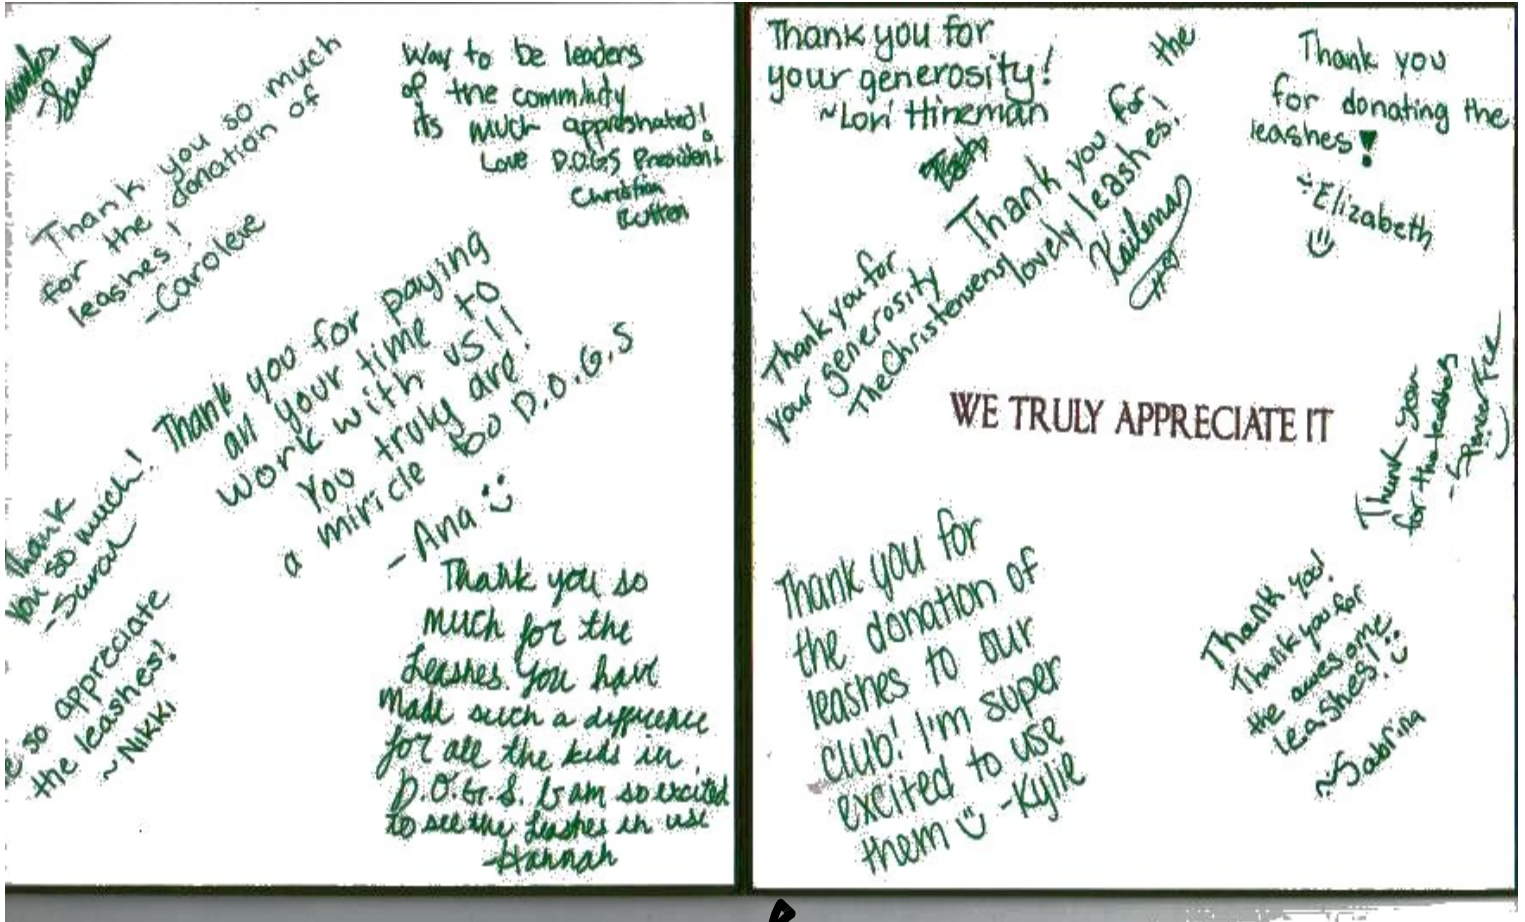 -Sarah
Thank you so much
for the donation of
leashes!
-Carolene
Way to be leaders
of the commnity
its much appreshated!
Love D.O.G.S President
Christian
Rutten
Thank you for paying
all your time to
work with us!!
You truly are!
a miricle too D.O.G.S
-Ana
Thank
you so much!
-Sarah
so appreciate
the leashes!
~Nikki
Thank you so
much for the
Leashes. You have
made such a diffrence
for all the kids in
D.O.G.S. I am so excited
to see the leashes in use
-Hannah
Thank you for
your generosity!
~Lori Hineman
Thank you for the
lovely leashes!
Thank you
for donating the
leashes!
-Elizabeth
Thank you for
your generosity
The Christensens
WE TRULY APPRECIATE IT
Thank you
for the leashes
Thank you for
the donation of
leashes to our
club! I'm super
excited to use
them -Kylie
Thank you!
Thank you for
the awesome
leashes!
~Sabrina